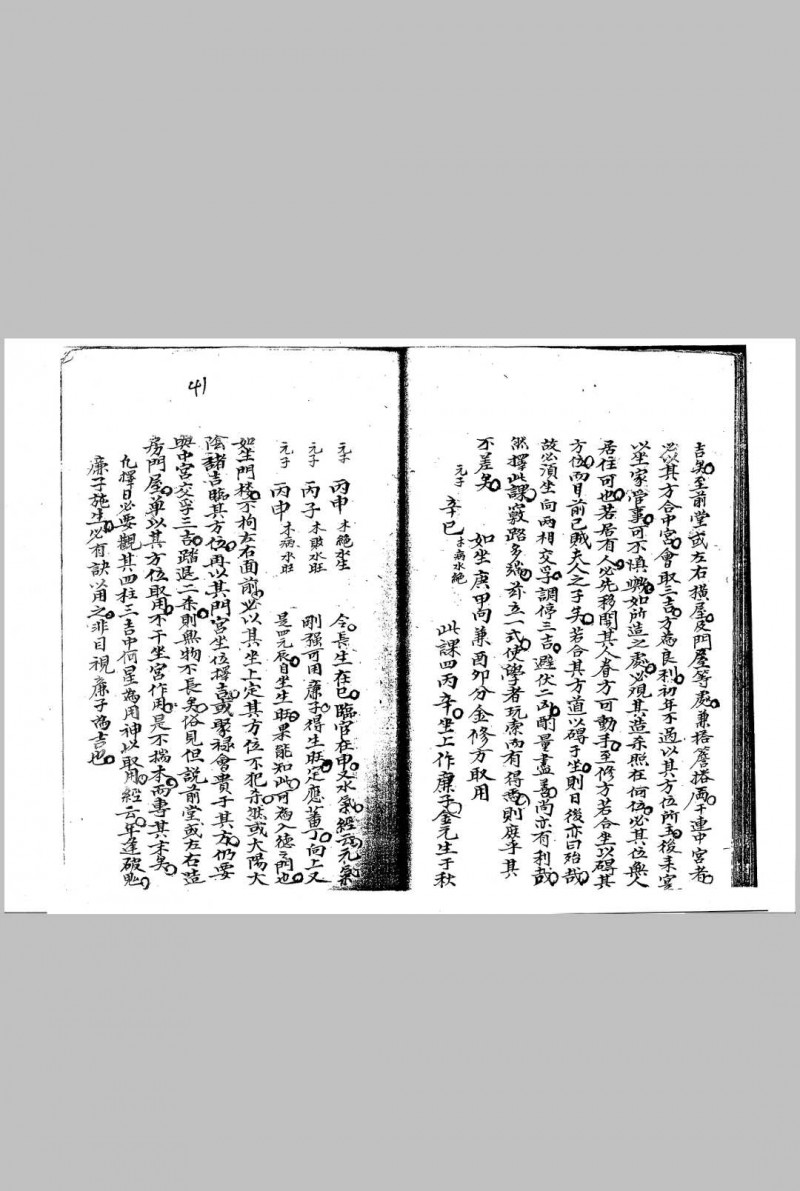 吉矣至前堂或左右橫屋及門屋等處兼搭簷搭廊干連中宮者
必以其方合中宮會取三吉方為良利初年不過以其方位所主後來官
以坐家管事可不慎歟如所造之處必須其造杀照在何位必其位無人
居住可也若居有人必先移開其人眷方可動手至修方若合坐以碍其
方位而目前已賊夫人之子矣若合其方道以碍于坐則日後亦曰殆哉
故必須坐向兩相交孚調停三吉避伏二凶酌量盡善尚亦有利哉
然擇此課竅路多端前立一式使學者玩索而有得焉則庶乎其
不差矣
如坐庚甲向兼酉卯分金修方取用
元子 辛巳 木病水絕 此課四丙辛坐上作廉子金元生于秋
41
元子 丙申 木絕水生 今長生在巳臨官在申又水氣經云元氣
元子 丙子 木敗水旺 剛强可用廉子得生旺定應蕃丁向上又
元子 丙申 木病水旺 是四元辰自坐生旺果能知此可為入德之門也
如坐門楼不拘左右面前必以其坐上定其方位不犯帝煞或太陽太
陰諸吉臨其方位再以其門宮坐位擇吉或聚祿會貴于其方仍要
與中宮交孚三吉踏退二杀則無物不長矣俗見但說前堂或左右造
房門屋單以其方位取用不干坐宮作用是不揣本而專其末矣
凡擇日必要觀其四柱三吉中何星為用神以取用經云年逢破鬼
廉子施生必有訣以用之非目視廉子為吉也